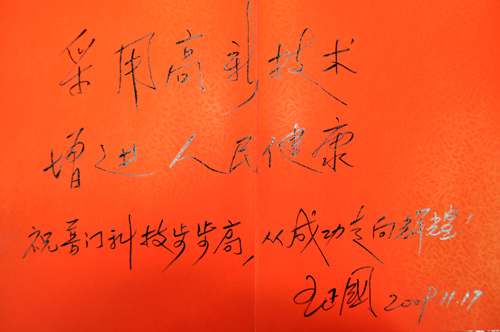 采用高新技术
增进人民健康
祝普门科技步步高，从成功走向辉煌！
国 2009.11.17